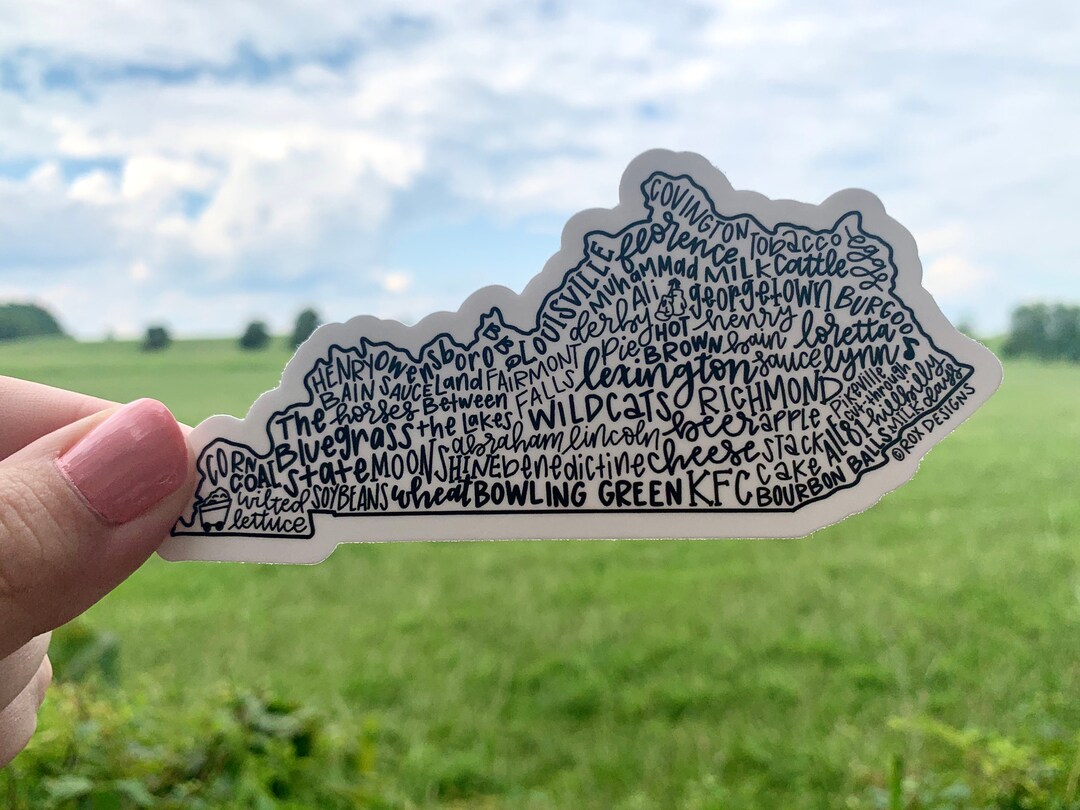 COVINGTON
florence
Tobacco
eggs
LOUISVILLE
Muhammad Ali
MILK
Cattle
derby
georgetown
BURGOO
HOT BROWN
henry bain sauce
loretta lynn
HENRY BAIN SAUCE
Owensboro
BBQ
Land Between the lakes
FAIRMONT FALLS
Pie
lexington
Pikeville cut-through
hillbilly days
The Bluegrass State
horses
WILDCATS
RICHMOND
abraham lincoln
beer cheese
apple stack cake
Ale 81
MILK
CORN
COAL
MOONSHINE
benedictine
wilted lettuce
SOYBEANS
wheat
BOWLING GREEN
KFC
BOURBON BALLS
©ROX DESIGNS